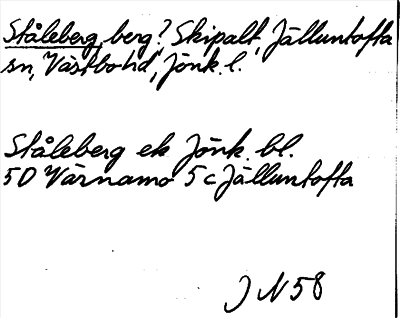 Ståleberg, berg? Skipalt, Jälluntofta
sn, Västbo hd, Jönk. l.
Ståleberg ek Jönk. bl.
5D Värnamo 5 c Jälluntofta
J N 58